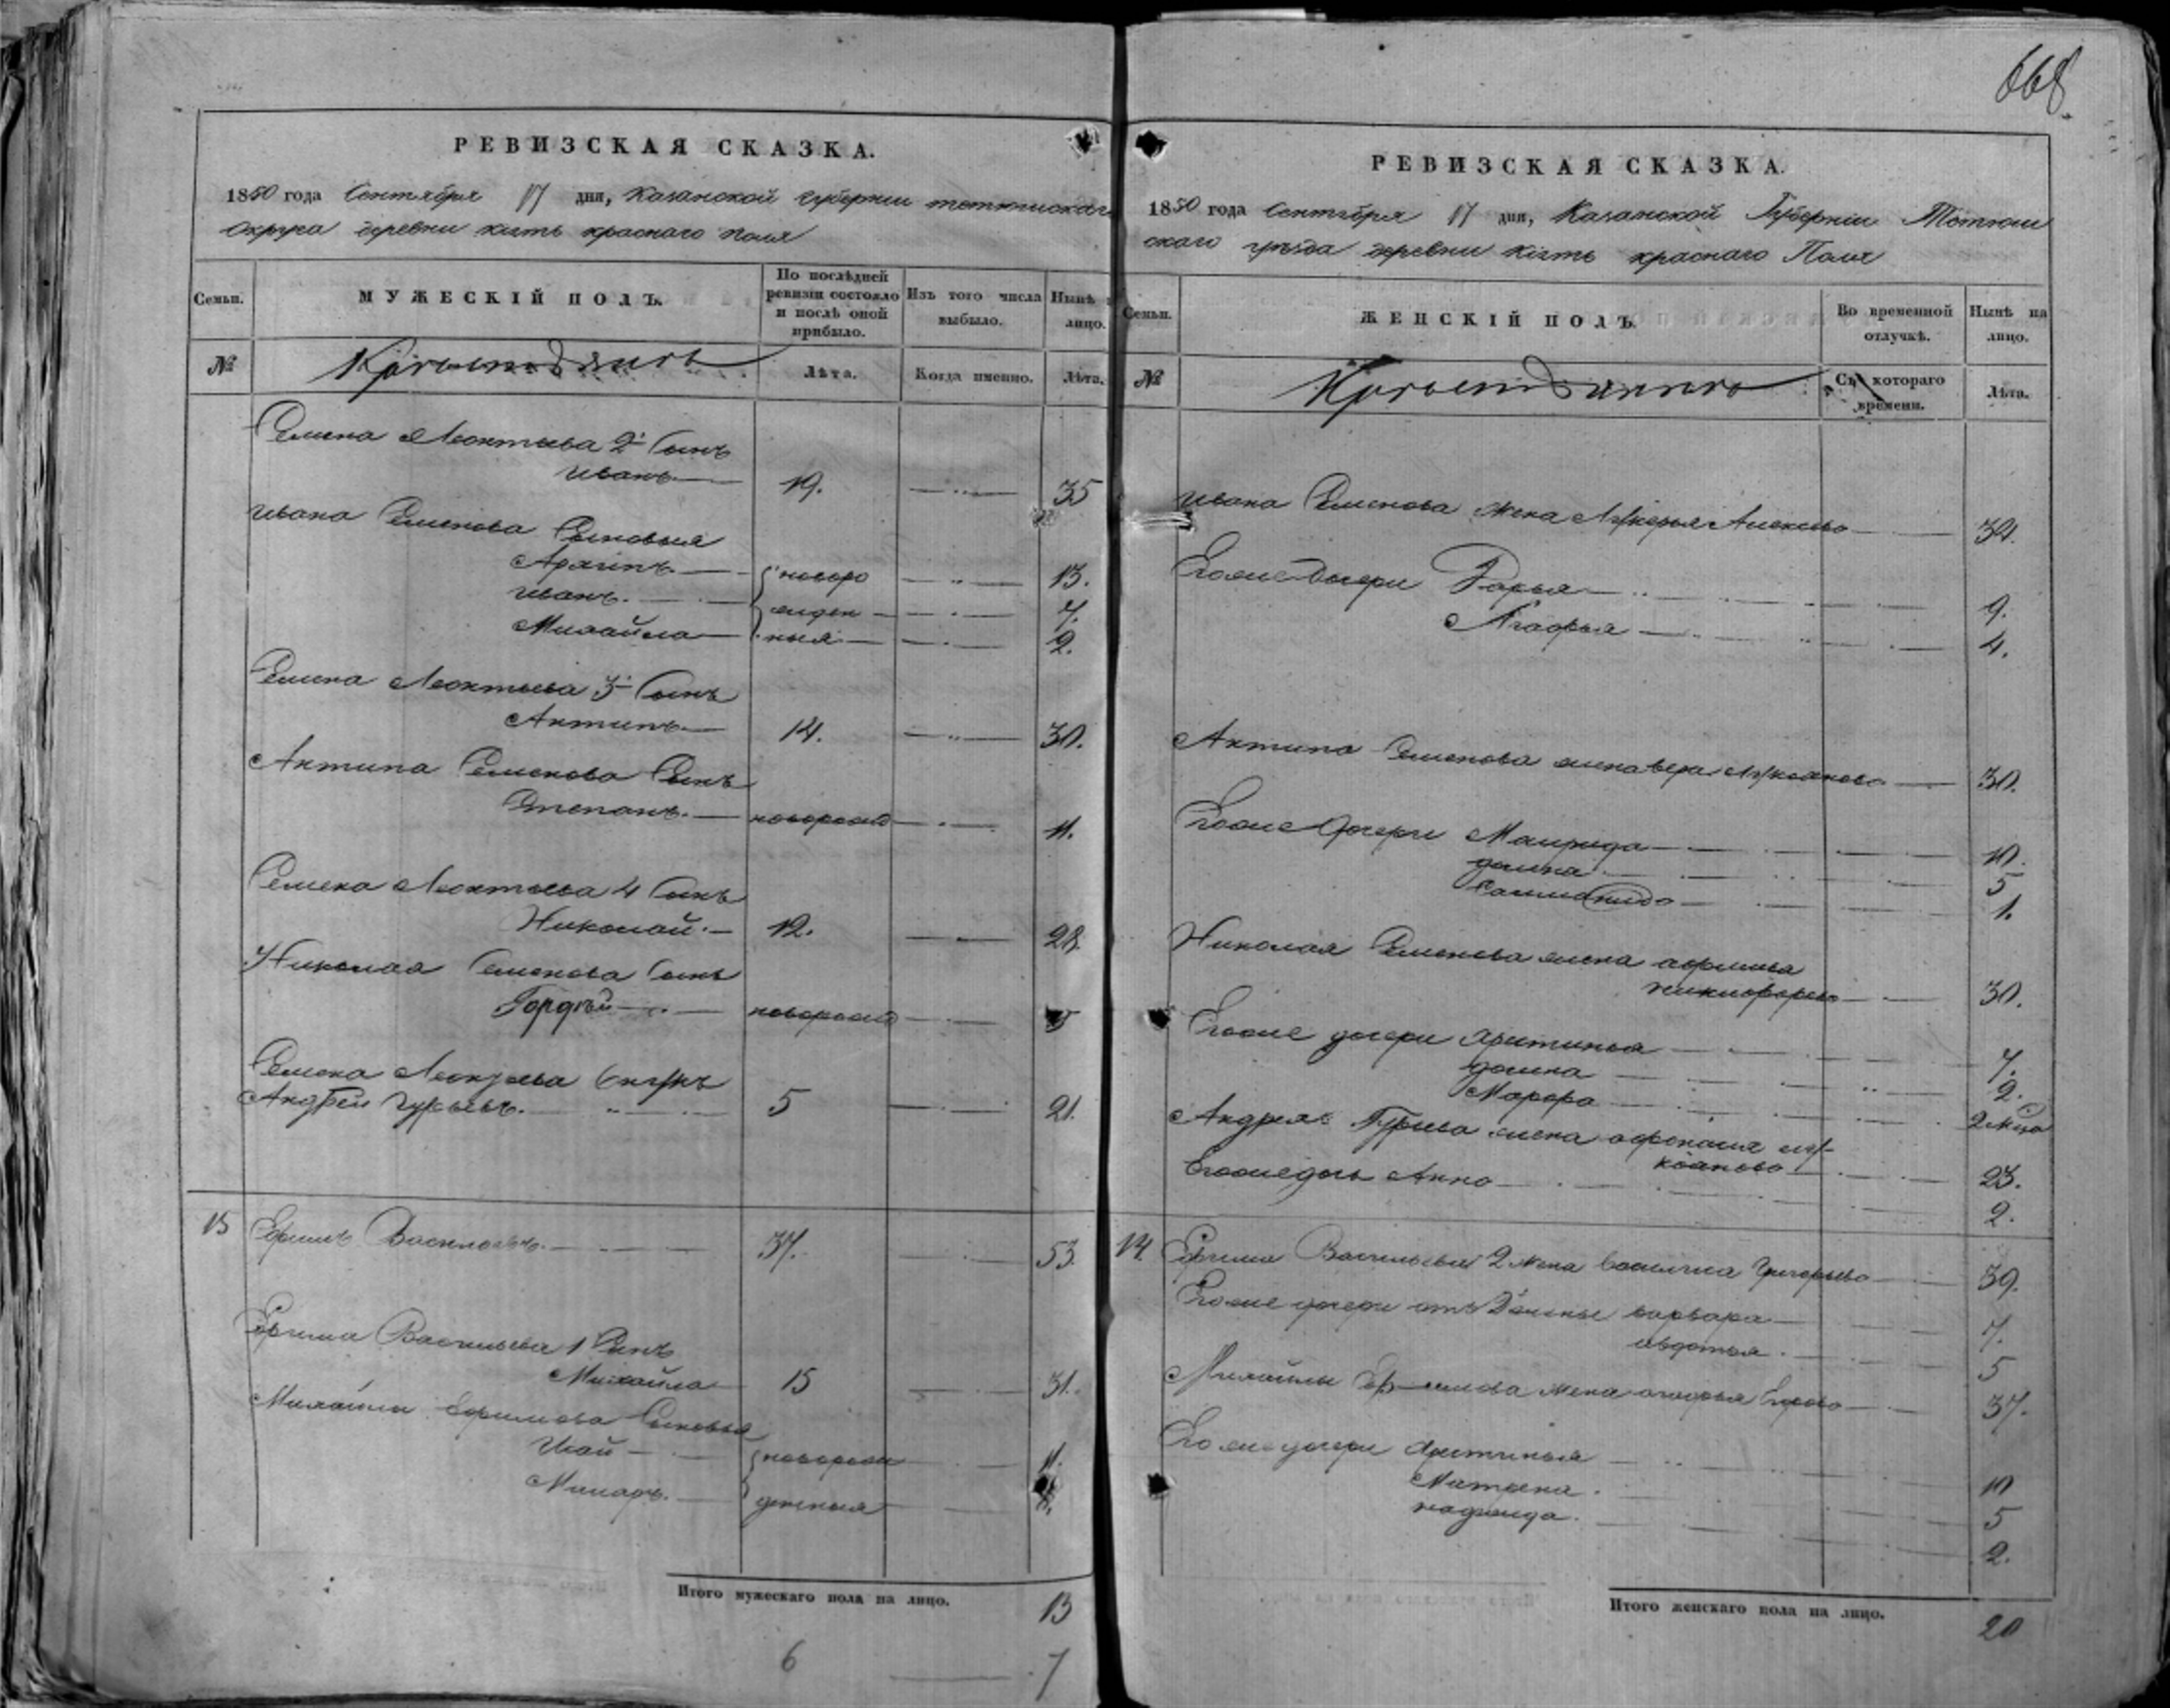 668.
РЕВИЗСКАЯ СКАЗКА.
1850 года Сентября 17 дня, Казанской губернии тетюшскаго
округа деревни кіять краснаго поля
Семьи.
МУЖЕСКІЙ ПОЛЪ.
По послѣдней ревизіи состояло и послѣ оной прибыло.
Изъ того числа выбыло.
Нынѣ лицо.
№
Лѣта.
Когда именно.
Лѣта.
Семена Леонтьева 2й Сынъ
Иванъ 19. 35
Ивана Семенова Сыновья
Архипъ новоро 13.
Иванъ. жден 7.
Михайла ныя 2.
Семена Леонтьева 3й Сынъ
Антипъ 14. 30.
Антипа Семенова Сынъ
Степанъ. новорожд 11.
Семена Леонтьева 4 Сынъ
Николай. 12. 28.
Николая Семенова Сынъ
Гордѣй новорожд 5
Семена Леонтьева внукъ
Андрей Гурьевъ. 5 21.
15 Ефимъ Васильевъ. 37. 53.
Ефима Васильева 1 Сынъ
Михайла 15 31.
Михайлы Ефимова Сыновья
Исай новорож 11.
Макаръ. денныя
Итого мужескаго пола на лицо. 13
6 7
РЕВИЗСКАЯ СКАЗКА.
1850 года Сентября 17 дня, Казанской Губерніи Тетюш
скаго уѣзда деревни Кіять краснаго Поля
Семьи.
ЖЕНСКІЙ ПОЛЪ.
Во временной отлучкѣ.
Нынѣ на лицо.
№
Съ котораго времени.
Лѣта.
Ивана Семенова жена Лукерья Алексѣева 34.
Егоже Дочери Дарья 9.
Агафья 4.
Антипа Семенова жена вера Лукоянова 30.
Егоже Дочери 10.
5
1.
Николая Семенова жена
никифорова 30.
Егоже дочери 7.
2.
Марфа 2 мца
Андрея Гурьева жена лу-
коянова 23.
Егоже дочь Анна 2.
14. Ефима Васильева 2 жена василиса Григорьева 39.
Егоже дочери отъ варвара 7.
авдотья. 5
Михайлы Ефимова жена агафья Егорова 37.
Егоже дочери 10
Матрена. 5
надежда. 2.
Итого женскаго пола на лицо. 20